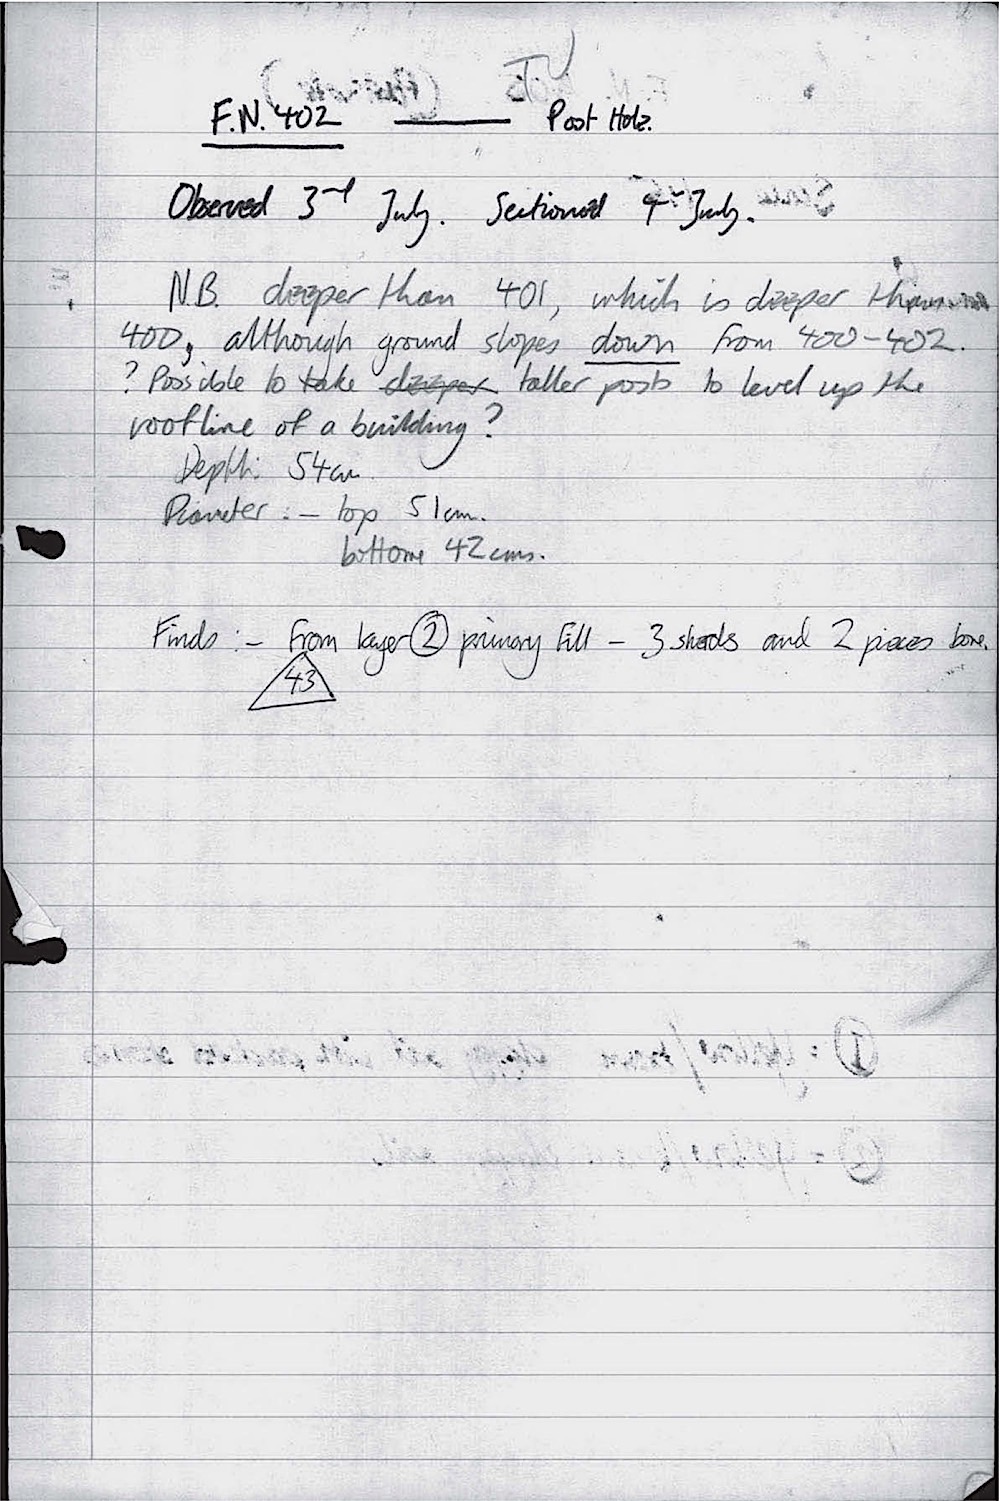 F.N. 402 —— Post Hole.
Observed 3rd July. Sectioned 4th July.
N.B. deeper than 401, which is deeper than
400, although ground slopes down from 400-402.
? Possible to take deeper taller posts to level up the
roofline of a building?
Depth: 54cm
Diameter :- top 51cm.
bottom 42cms.
Finds :- From layer ② primary fill - 3 sherds and 2 pieces bone.
43